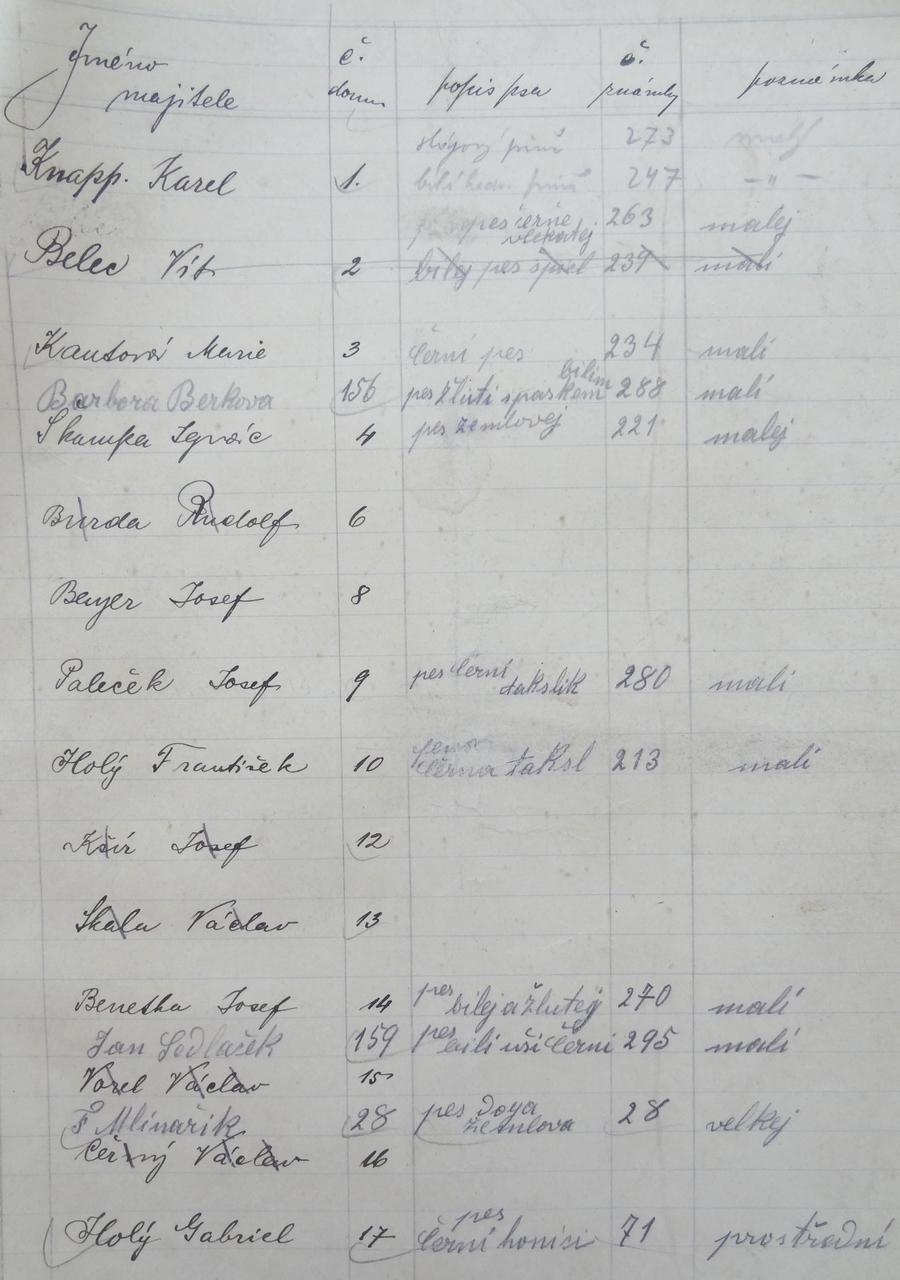 Jméno majitele č. domu popis psa č. známky poznámka
273
Knapp. Karel 1. 247 – " –
pes černe vlckatej 263 malej
Belec Vít 2 bílej pes špicl 239 malí
Kautová Marie 3 černí pes 234 malí
Barbora Berkova 156 pes žlutí s paskem bílim 288 malí
Skampa Ignác 4 pes zemlovej 221 malej
Burda Rudolf 6
Beyer Josef 8
Paleček Josef 9 pes černí takslik 280 malí
Holý František 10 černa taksl 213 malí
Kšír Josef 12
Skala Václav 13
Benetka Josef 14 pes bílej a žlutej 270 malí
Jan Sedlaček 159 pes bílí uši černi 295 malí
Vorel Václav 15
F Mlinařik 28 pes Doga 28 velkej
Černý Václav 16
Holý Gabriel 17 pes černí honisi 71 prostřední